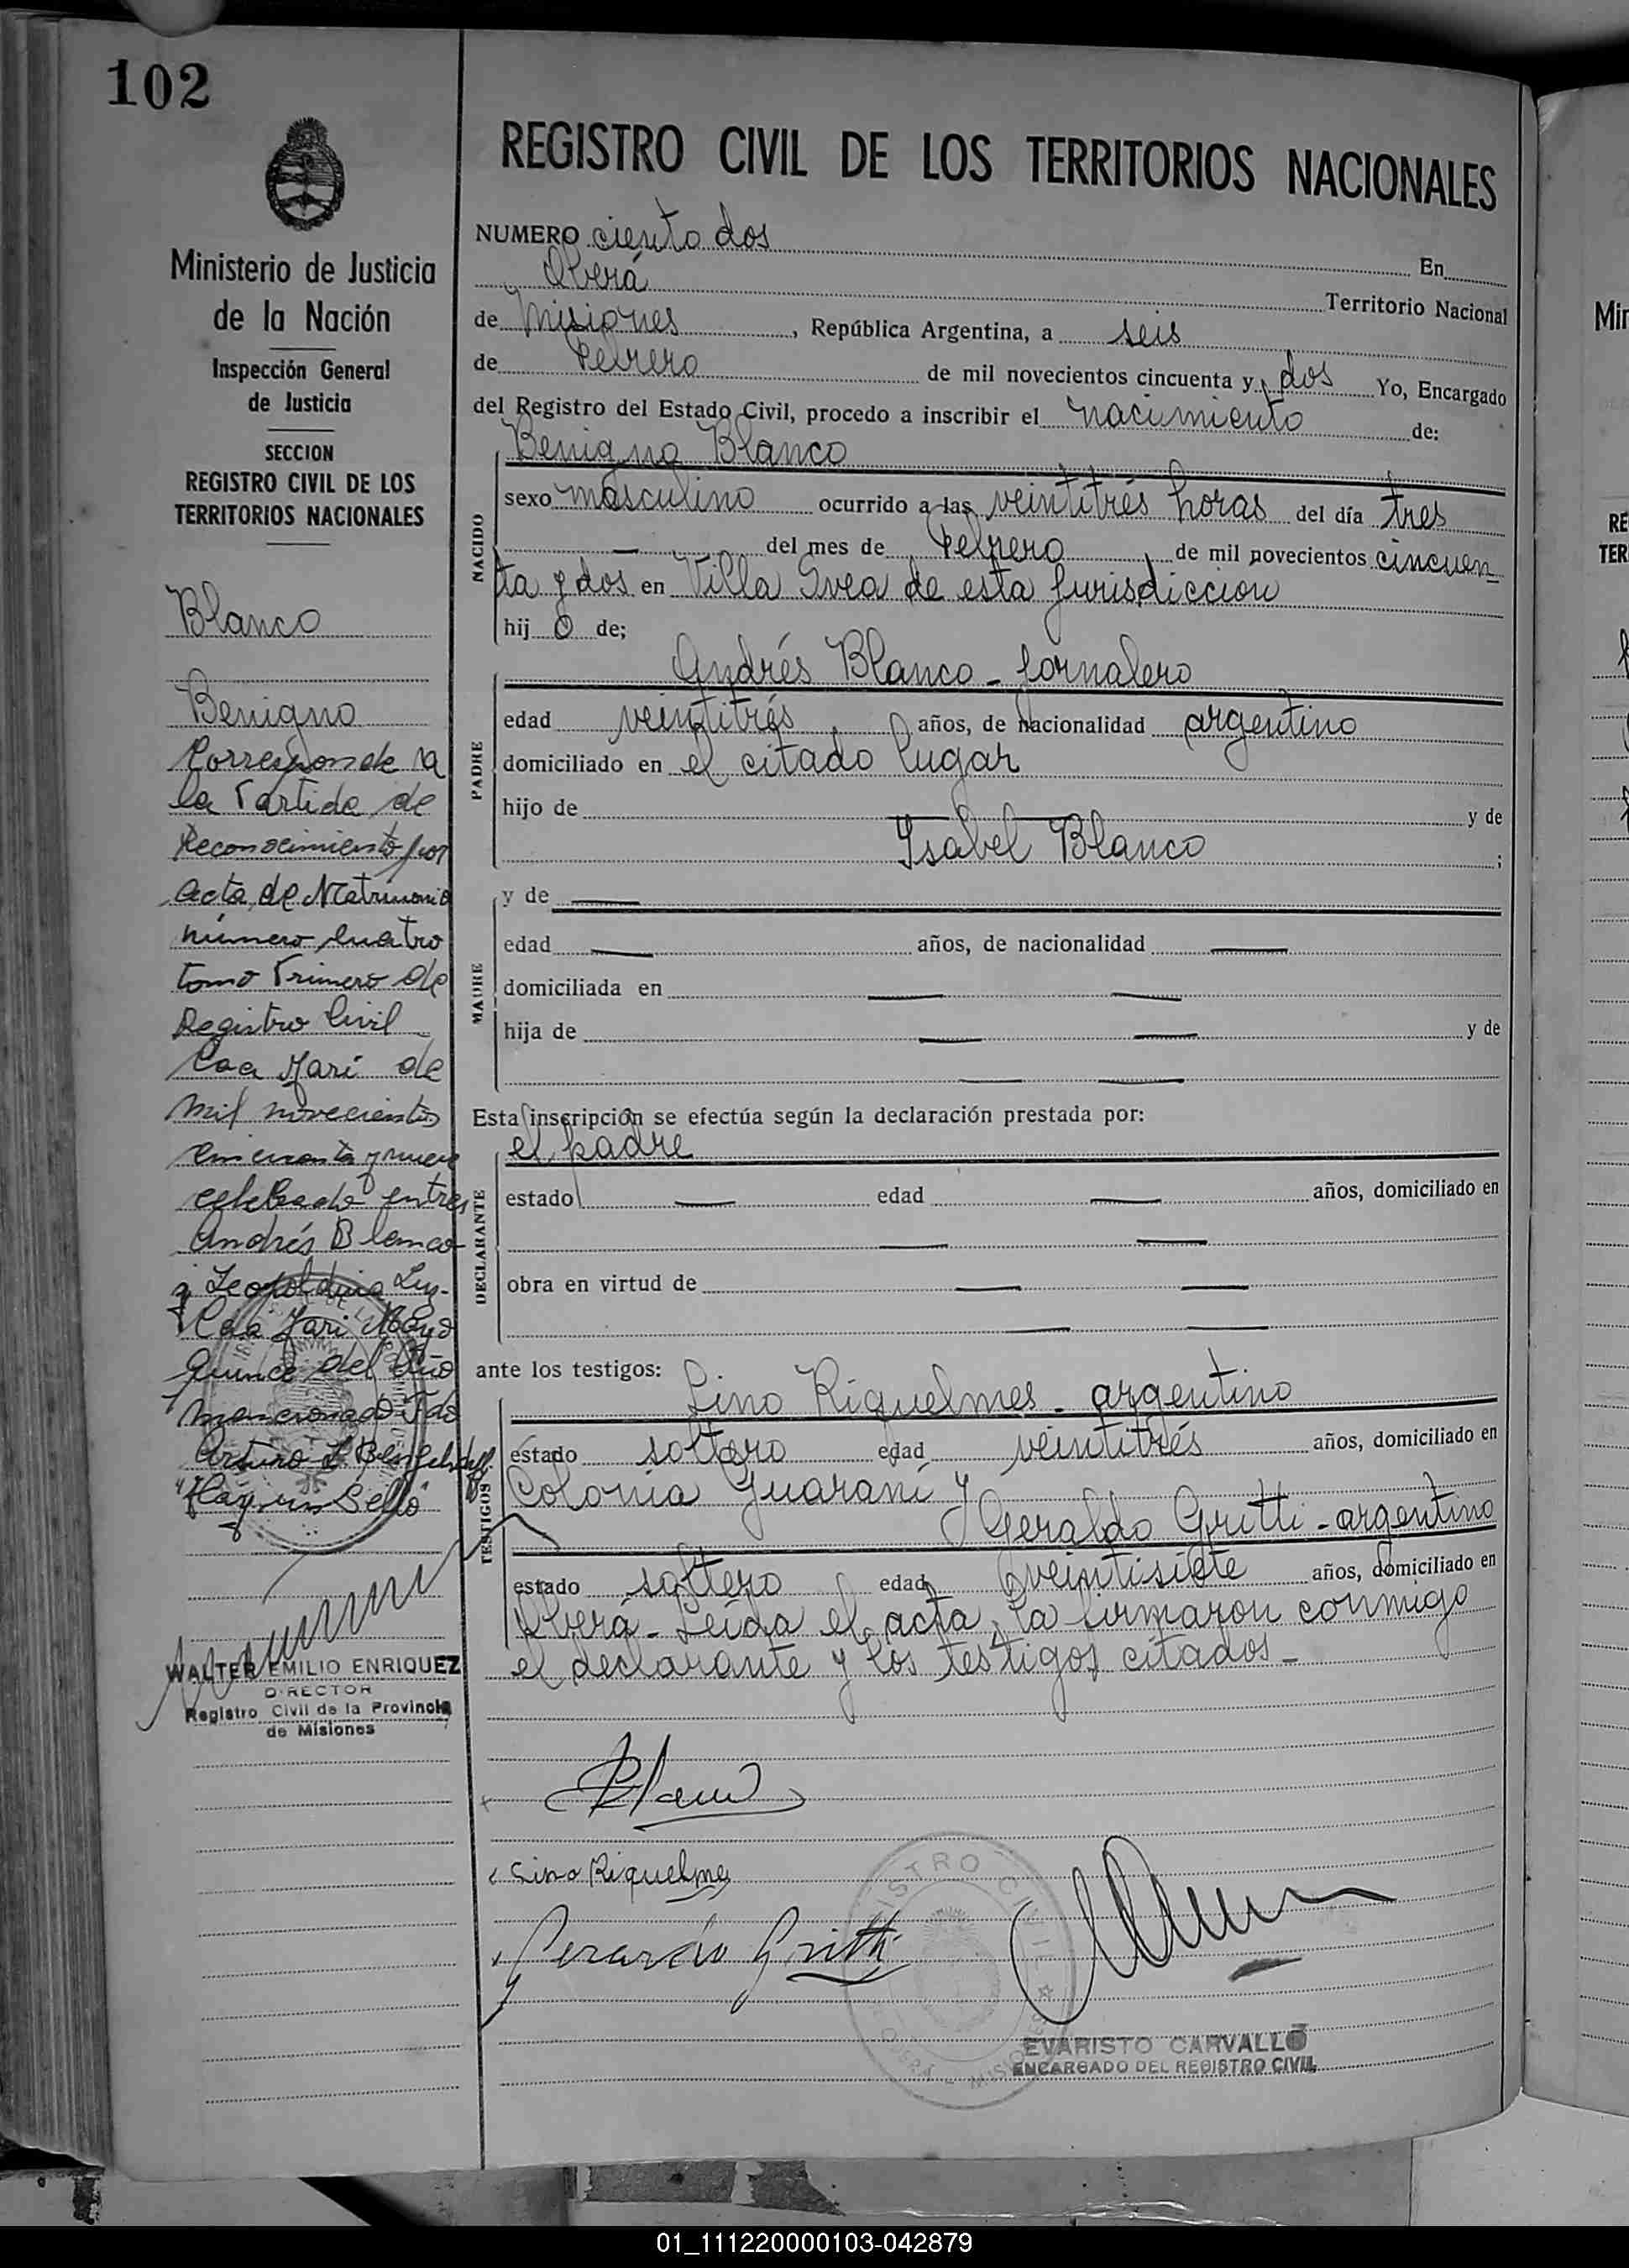 102
Ministerio de Justicia
de la Nación
Inspección General
de Justicia
SECCION
REGISTRO CIVIL DE LOS
TERRITORIOS NACIONALES
Blanco
Benigno
Corresponde a
la Partida de
Reconocimiento por
acta de Matrimonio
número cuatro
tomo Primero de
Registro Civil
Caa Yarí de
mil novecientos
cincuenta y nueve
celebrado entre
Andrés Blanco
y Leopoldina
Caa Yari Mayo
quince del año
mencionado Fdo
Arturo
"Hay un Sello"
WALTER EMILIO ENRIQUEZ
DIRECTOR
Registro Civil de la Provincia
de Misiones
REGISTRO CIVIL DE LOS TERRITORIOS NACIONALES
NUMERO ciento dos En
Oberá Territorio Nacional
de Misiones, República Argentina, a seis
de Febrero de mil novecientos cincuenta y dos Yo, Encargado
del Registro del Estado Civil, procedo a inscribir el nacimiento de:
NACIDO
Benigno Blanco
sexo masculino ocurrido a las veintitrés horas del día tres
— del mes de Febrero de mil novecientos cincuen
ta y dos en Villa Svea de esta Jurisdiccion
hij o de;
PADRE
Andrés Blanco - Jornalero
edad veintitrés años, de nacionalidad argentino
domiciliado en el citado lugar
hijo de y de
Isabel Blanco ;
MADRE
y de —
edad — años, de nacionalidad —
domiciliada en — —
hija de — — y de
— —
Esta inscripción se efectúa según la declaración prestada por:
DECLARANTE
el padre
estado — edad — años, domiciliado en
— —
obra en virtud de — —
— —
ante los testigos:
TESTIGOS
Lino Riquelmes - argentino
estado soltero edad veintitrés años, domiciliado en
Colonia Guaraní y
Geraldo Gritti - argentino
estado soltero edad veintisiete años, domiciliado en
Oberá - Leída el acta, la firmaron conmigo
el declarante y los testigos citados -
Blanco
Lino Riquelmes
Gerardo Gritti
REGISTRO CIVIL
OBERA - MISIONES
EVARISTO CARVALLO
ENCARGADO DEL REGISTRO CIVIL
Min
RE
TER
01_111220000103-042879